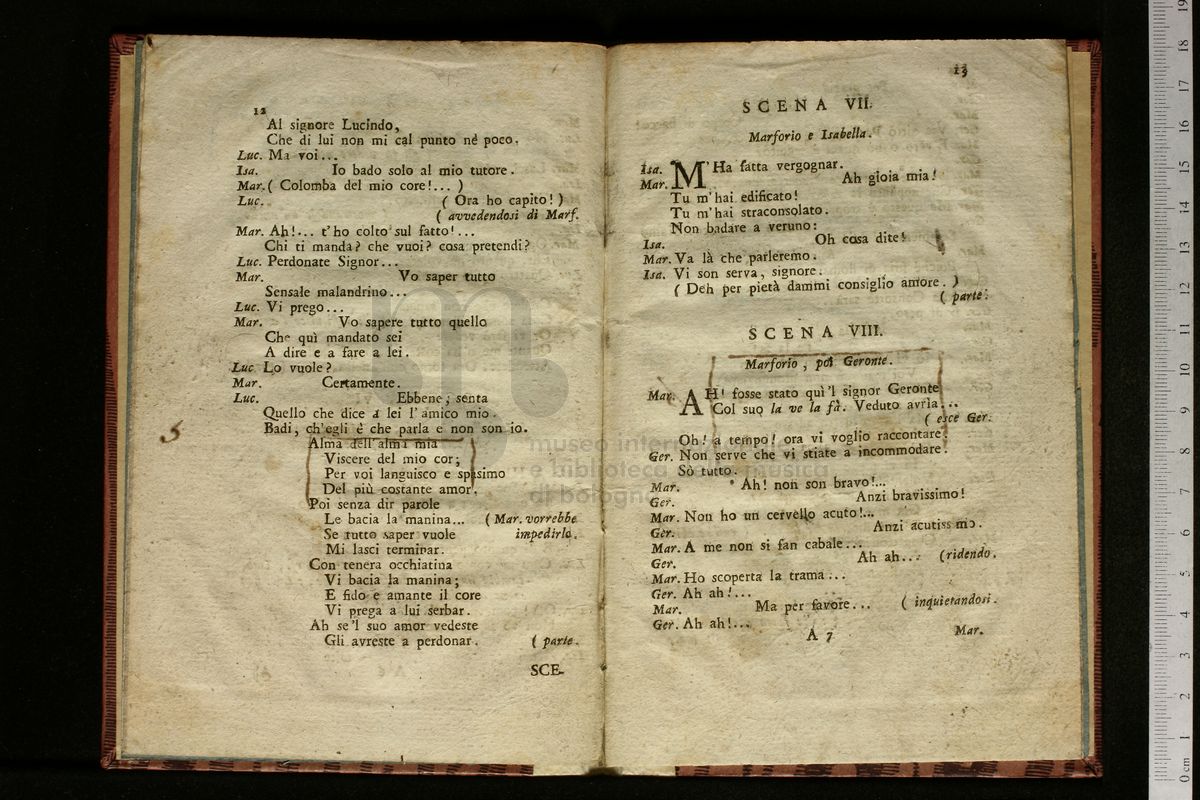 12
Al signore Lucindo,
Che di lui non mi cal punto nè poco.
Luc. Ma voi...
Isa. Io bado solo al mio tutore.
Mar. ( Colomba del mio core!... )
Luc. ( Ora ho capito! )
( avvedendosi di Marf.
Mar. Ah!... t'ho colto sul fatto!...
Chi ti manda? che vuoi? cosa pretendi?
Luc. Perdonate Signor...
Mar. Vo saper tutto
Sensale malandrino...
Luc. Vi prego...
Mar. Vo sapere tutto quello
Che quì mandato sei
A dire e a fare a lei.
Luc. Lo vuole?
Mar. Certamente.
Luc. Ebbene; senta
Quello che dice a lei l'amico mio.
Badi, ch'egli è che parla e non son io.
Alma dell'alma mia
Viscere del mio cor;
Per voi languisco e spasimo
Del più costante amor.
Poi senza dir parole
Le bacia la manina... ( Mar. vorrebbe
Se tutto saper vuole impedirlo.
Mi lasci terminar.
Con tenera occhiatina
Vi bacia la manina;
E fido e amante il core
Vi prega a lui serbar.
Ah se'l suo amor vedeste
Gli avreste a perdonar. ( parte.
SCE-
13
SCENA VII.
Marforio e Isabella.
Isa. M'Ha fatta vergognar.
Mar. Ah gioia mia!
Tu m'hai edificato!
Tu m'hai straconsolato.
Non badare a veruno:
Isa. Oh cosa dite!
Mar. Va là che parleremo.
Isa. Vi son serva, signore.
( Deh per pietà dammi consiglio amore. )
( parte.
SCENA VIII.
Marforio, poi Geronte.
Mar. AH! fosse stato quì'l signor Geronte
Col suo la ve la fà. Veduto avria...
( esce Ger.
Oh! a tempo! ora vi voglio raccontare.
Ger. Non serve che vi stiate a incommodare.
Sò tutto.
Mar. Ah! non son bravo!...
Ger. Anzi bravissimo!
Mar. Non ho un cervello acuto!...
Ger. Anzi acutissimo.
Mar. A me non si fan cabale...
Ger. Ah ah... (ridendo.
Mar. Ho scoperta la trama...
Ger. Ah ah!...
Mar. Ma per favore... ( inquietandosi.
Ger. Ah ah!...
A 7
Mar.
museo internazionale
e biblioteca della musica
di bologna